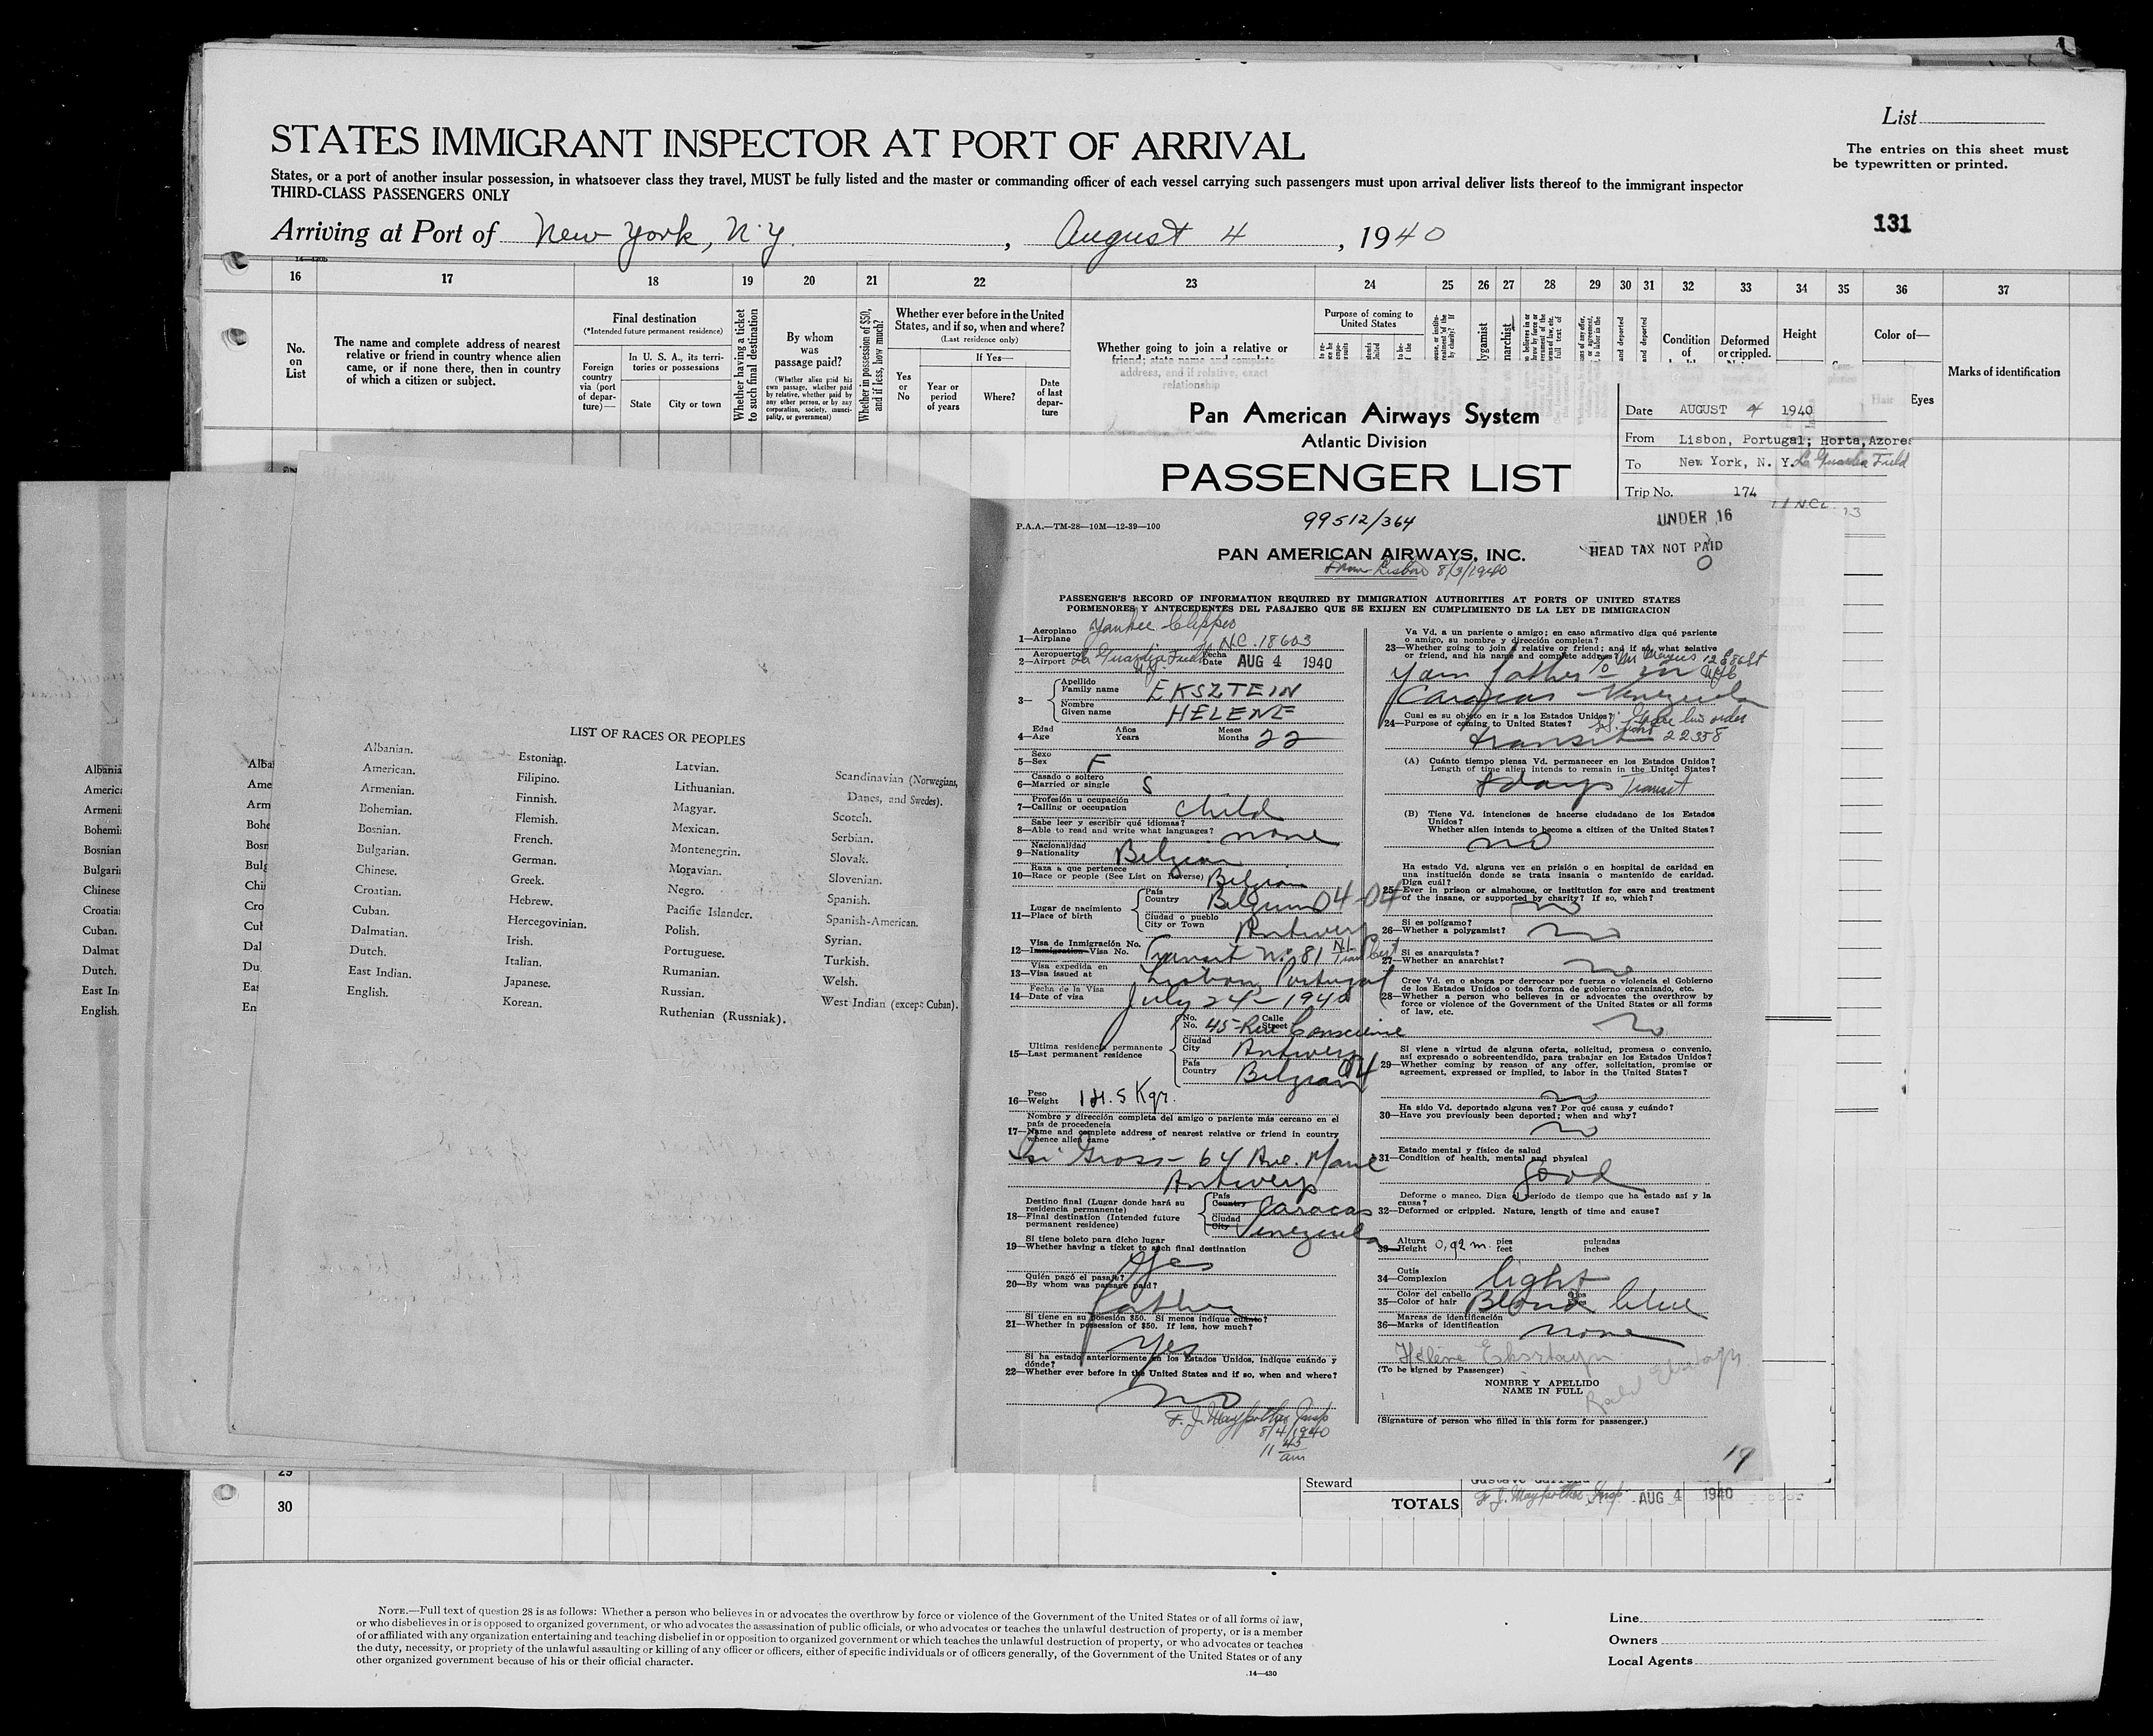 List
STATES IMMIGRANT INSPECTOR AT PORT OF ARRIVAL
The entries on this sheet must
be typewritten or printed.
States, or a port of another insular possession, in whatsoever class they travel, MUST be fully listed and the master or commanding officer of each vessel carrying such passengers must upon arrival deliver lists thereof to the immigrant inspector
THIRD-CLASS PASSENGERS ONLY
131
Arriving at Port of New York, N.Y. , August 4 , 1940
16 17 18 19 20 21 22 23 24 25 26 27 28 29 30 31 32 33 34 35 36 37
No.
on
List
The name and complete address of nearest
relative or friend in country whence alien
came, or if none there, then in country
of which a citizen or subject.
Final destination
(*Intended future permanent residence)
Foreign
country
via (port
of depar-
ture)—
In U. S. A., its terri-
tories or possessions
State
City or town
Whether having a ticket
to such final destination
By whom
was
passage paid?
(Whether alien paid his
own passage, whether paid
by relative, whether paid by
any other person, or by any
corporation, society, munici-
pality, or government)
Whether in possession of $50,
and if less, how much?
Whether ever before in the United
States, and if so, when and where?
(Last residence only)
If Yes—
Yes
or
No
Year or
period
of years
Where?
Date
of last
depar-
ture
Whether going to join a relative or
friend; state name and complete
address, and if relative, exact
relationship
Purpose of coming to
United States
Condition
of
Deformed
or crippled.
Height
Color of—
Hair
Eyes
Marks of identification
Pan American Airways System
Atlantic Division
PASSENGER LIST
Date AUGUST 4 1940
From Lisbon, Portugal; Horta, Azores
To New York, N. Y. La Guardia Field
Trip No. 174
LIST OF RACES OR PEOPLES
Albanian.
American.
Armenian.
Bohemian.
Bosnian.
Bulgarian.
Chinese.
Croatian.
Cuban.
Dalmatian.
Dutch.
East Indian.
English.
Estonian.
Filipino.
Finnish.
Flemish.
French.
German.
Greek.
Hebrew.
Hercegovinian.
Irish.
Italian.
Japanese.
Korean.
Latvian.
Lithuanian.
Magyar.
Mexican.
Montenegrin.
Moravian.
Negro.
Pacific Islander.
Polish.
Portuguese.
Rumanian.
Russian.
Ruthenian (Russniak).
Scandinavian (Norwegians,
Danes, and Swedes).
Scotch.
Serbian.
Slovak.
Slovenian.
Spanish.
Spanish-American.
Syrian.
Turkish.
Welsh.
West Indian (except Cuban).
P.A.A.—TM-28—10M—12-39—100
99512/364
UNDER 16
HEAD TAX NOT PAID
PAN AMERICAN AIRWAYS, INC.
From Lisbon 8/3/1940
PASSENGER'S RECORD OF INFORMATION REQUIRED BY IMMIGRATION AUTHORITIES AT PORTS OF UNITED STATES
PORMENORES Y ANTECEDENTES DEL PASAJERO QUE SE EXIJEN EN CUMPLIMIENTO DE LA LEY DE IMMIGRACION
Aeroplano
1—Airplane Yankee Clipper NC. 18603
Aeropuerto Fecha
2—Airport La Guardia Field N.Y. Date AUG 4 1940
3—
Apellido
Family name EKSZTEIN
Nombre
Given name HELENE
Edad Años Meses
4—Age Years Months 22
Sexo
5—Sex F
Casado o soltero
6—Married or single S
Profesión u ocupación
7—Calling or occupation child
Sabe leer y escribir qué idiomas?
8—Able to read and write what languages? none
Nacionalidad
9—Nationality Belgian
Raza a que pertenece
10—Race or people (See List on Reverse) Belgian
Lugar de nacimiento
11—Place of birth
País
Country Belgium 04-04
Ciudad o pueblo
City or Town Antwerp
Visa de Inmigración No.
12—Immigration Visa No. Transit No. 81
Visa expedida en
13—Visa issued at Lisbon Portugal
Fecha de la Visa
14—Date of visa July 24 - 1940
Ultima residencia permanente
15—Last permanent residence
No. Calle
No. Street 45- Rue Conscience
Ciudad
City Antwerp
País
Country Belgian 04
Peso
16—Weight 14.5 Kgr.
Nombre y dirección completa del amigo o pariente más cercano en el
país de procedencia
17—Name and complete address of nearest relative or friend in country
whence alien came
Isi Gross - 64 Ave. Marie
Antwerp
Destino final (Lugar donde hará su
residencia permanente)
18—Final destination (Intended future
permanent residence)
País
Country Caracas
Ciudad
City Venezuela
Si tiene boleto para dicho lugar
19—Whether having a ticket to such final destination
Yes
Quién pagó el pasaje?
20—By whom was passage paid?
father
Si tiene en su posesión $50. Si menos indique cuánto?
21—Whether in possession of $50. If less, how much?
Yes
Si ha estado anteriormente en los Estados Unidos, indique cuándo y
dónde?
22—Whether ever before in the United States and if so, when and where?
no
F. J. Mayforther Insp
8/4/1940
11 45 am
Va Vd. a un pariente o amigo; en caso afirmativo diga qué pariente
o amigo, su nombre y dirección completa?
23—Whether going to join a relative or friend; and if so, what relative
or friend, and his name and complete address?
father
Caracas - Venezuela
Cual es su objeto en ir a los Estados Unidos?
24—Purpose of coming to United States?
transit 22358
(A) Cuánto tiempo piensa Vd. permanecer en los Estados Unidos?
Length of time alien intends to remain in the United States?
days Transit
(B) Tiene Vd. intenciones de hacerse ciudadano de los Estados
Unidos?
Whether alien intends to become a citizen of the United States?
no
Ha estado Vd. alguna vez en prisión o en hospital de caridad en
una institución donde se trata insania o mantenido de caridad.
Diga cuál?
25—Ever in prison or almshouse, or institution for care and treatment
of the insane, or supported by charity? If so, which?
no
Si es polígamo?
26—Whether a polygamist? no
Si es anarquista?
27—Whether an anarchist? no
Cree Vd. en o aboga por derrocar por fuerza o violencia el Gobierno
de los Estados Unidos o toda forma de gobierno organizado, etc.
28—Whether a person who believes in or advocates the overthrow by
force or violence of the Government of the United States or all forms
of law, etc.
no
Si viene a virtud de alguna oferta, solicitud, promesa o convenio,
así expresado o sobreentendido, para trabajar en los Estados Unidos?
29—Whether coming by reason of any offer, solicitation, promise or
agreement, expressed or implied, to labor in the United States?
no
Ha sido Vd. deportado alguna vez? Por qué causa y cuándo?
30—Have you previously been deported; when and why?
no
Estado mental y físico de salud
31—Condition of health, mental and physical
good
Deforme o manco. Diga el período de tiempo que ha estado así y la
causa?
32—Deformed or crippled. Nature, length of time and cause?
Altura pies pulgadas
33—Height 0,92 m. feet inches
Cutis
34—Complexion light
Color del cabello
35—Color of hair Blond blue
Marcas de identificación
36—Marks of identification none
Hélène Eksztayn
(To be signed by Passenger)
NOMBRE Y APELLIDO
NAME IN FULL
(Signature of person who filled in this form for passenger.)
19
29
30
Steward
TOTALS F. J. Mayforther Insp. AUG 4 1940
NOTE.—Full text of question 28 is as follows: Whether a person who believes in or advocates the overthrow by force or violence of the Government of the United States or of all forms of law,
or who disbelieves in or is opposed to organized government, or who advocates the assassination of public officials, or who advocates or teaches the unlawful destruction of property, or is a member
of or affiliated with any organization entertaining and teaching disbelief in or opposition to organized government or which teaches the unlawful destruction of property, or who advocates or teaches
the duty, necessity, or propriety of the unlawful assaulting or killing of any officer or officers, either of specific individuals or of officers generally, of the Government of the United States or of any
other organized government because of his or their official character.
14—430
Line
Owners
Local Agents